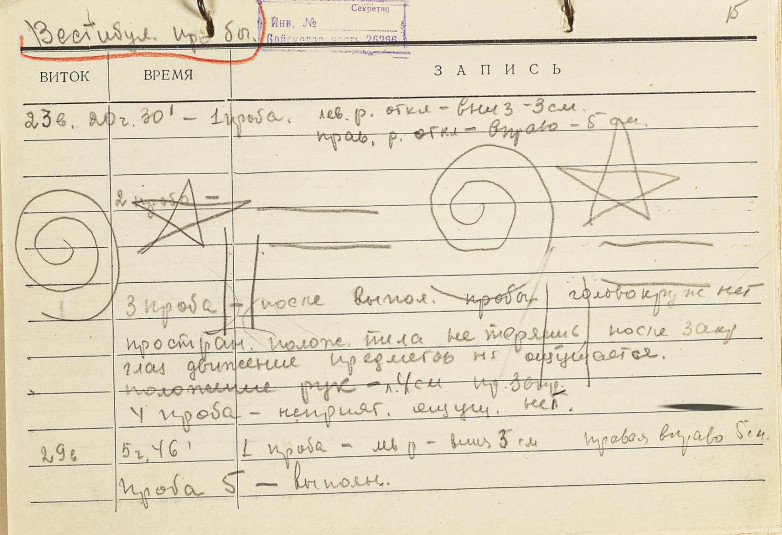 15
Секретно
Инв. №
Войсковая часть 26266
Вестибул. пробы.
ВИТОК ВРЕМЯ ЗАПИСЬ
23в. 20ч. 30' – 1 проба. лев. р. откл – вниз – 3 см.
прав. р. откл – вправо – 5 см.
2 проба –
3 проба – после выпол. пробы головокруж нет
простран. полож. тела не теряешь после закр
глаз движение предметов не ощущается.
положение рук – л. 4см пр. 3
4 проба – неприят. ощущ. нет.
29в 5ч. 46' 1 проба – лев р – вниз 3 см правая вправо 5 см.
Проба 5 – выполн.